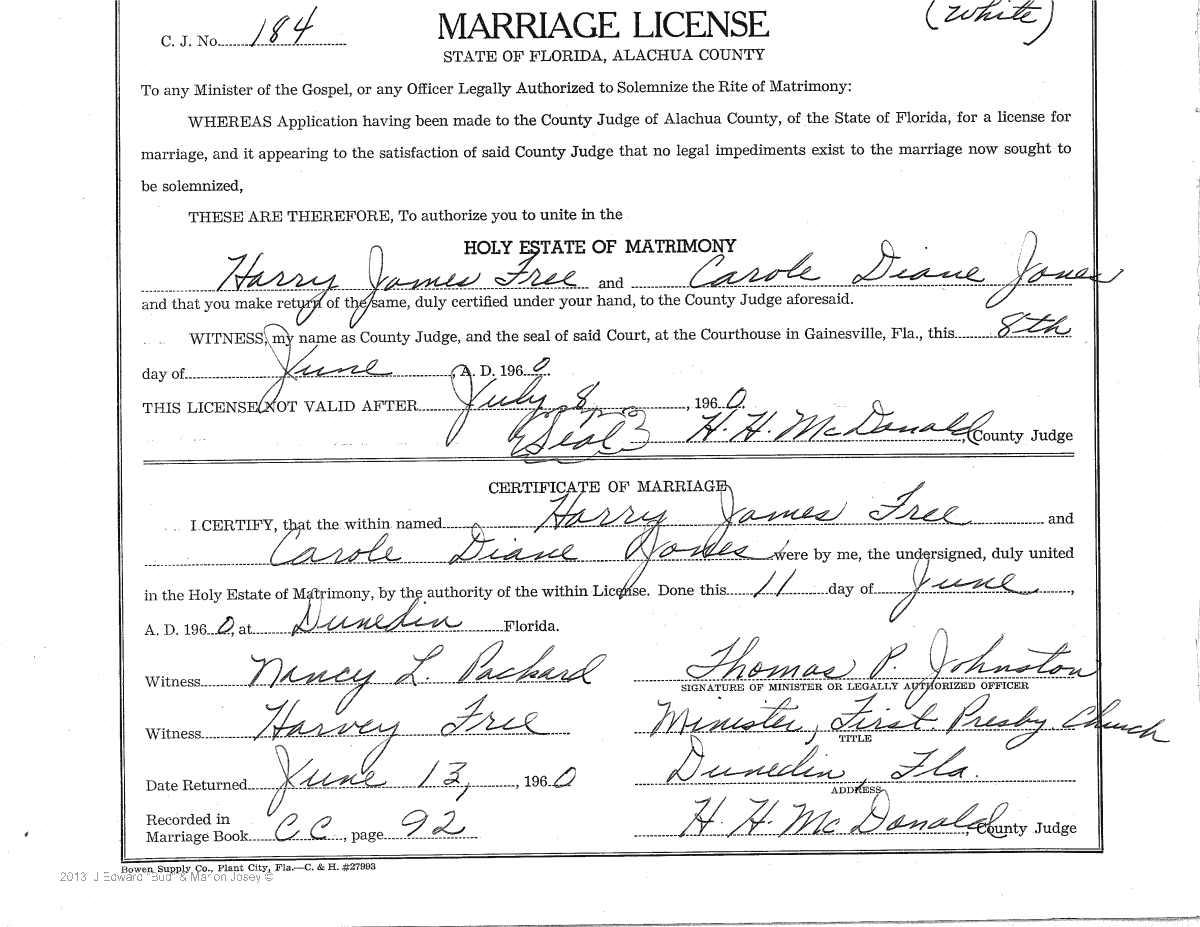 C. J. No. 184 MARRIAGE LICENSE (White)
STATE OF FLORIDA, ALACHUA COUNTY
To any Minister of the Gospel, or any Officer Legally Authorized to Solemnize the Rite of Matrimony:
WHEREAS Application having been made to the County Judge of Alachua County, of the State of Florida, for a license for
marriage, and it appearing to the satisfaction of said County Judge that no legal impediments exist to the marriage now sought to
be solemnized,
THESE ARE THEREFORE, To authorize you to unite in the
HOLY ESTATE OF MATRIMONY
Harry James Free and Carole Diane Jones
and that you make return of the same, duly certified under your hand, to the County Judge aforesaid.
WITNESS, my name as County Judge, and the seal of said Court, at the Courthouse in Gainesville, Fla., this 8th
day of June, A. D. 1960.
THIS LICENSE NOT VALID AFTER July 8, 1960.
Seal H. H. McDonald, County Judge
CERTIFICATE OF MARRIAGE
I CERTIFY, that the within named Harry James Free and
Carole Diane Jones were by me, the undersigned, duly united
in the Holy Estate of Matrimony, by the authority of the within License. Done this 11 day of June,
A. D. 1960, at Dunedin Florida.
Witness Nancy L. Packard Thomas P. Johnston
SIGNATURE OF MINISTER OR LEGALLY AUTHORIZED OFFICER
Witness Harvey Free Minister, First. Presby. Church
TITLE
Date Returned June 13, 1960 Dunedin, Fla.
ADDRESS
Recorded in
Marriage Book CC, page 92 H. H. McDonald, County Judge
Bowen Supply Co., Plant City, Fla.—C. & H. #27993
2013 J Edward "Bud" & Marion Josey ©